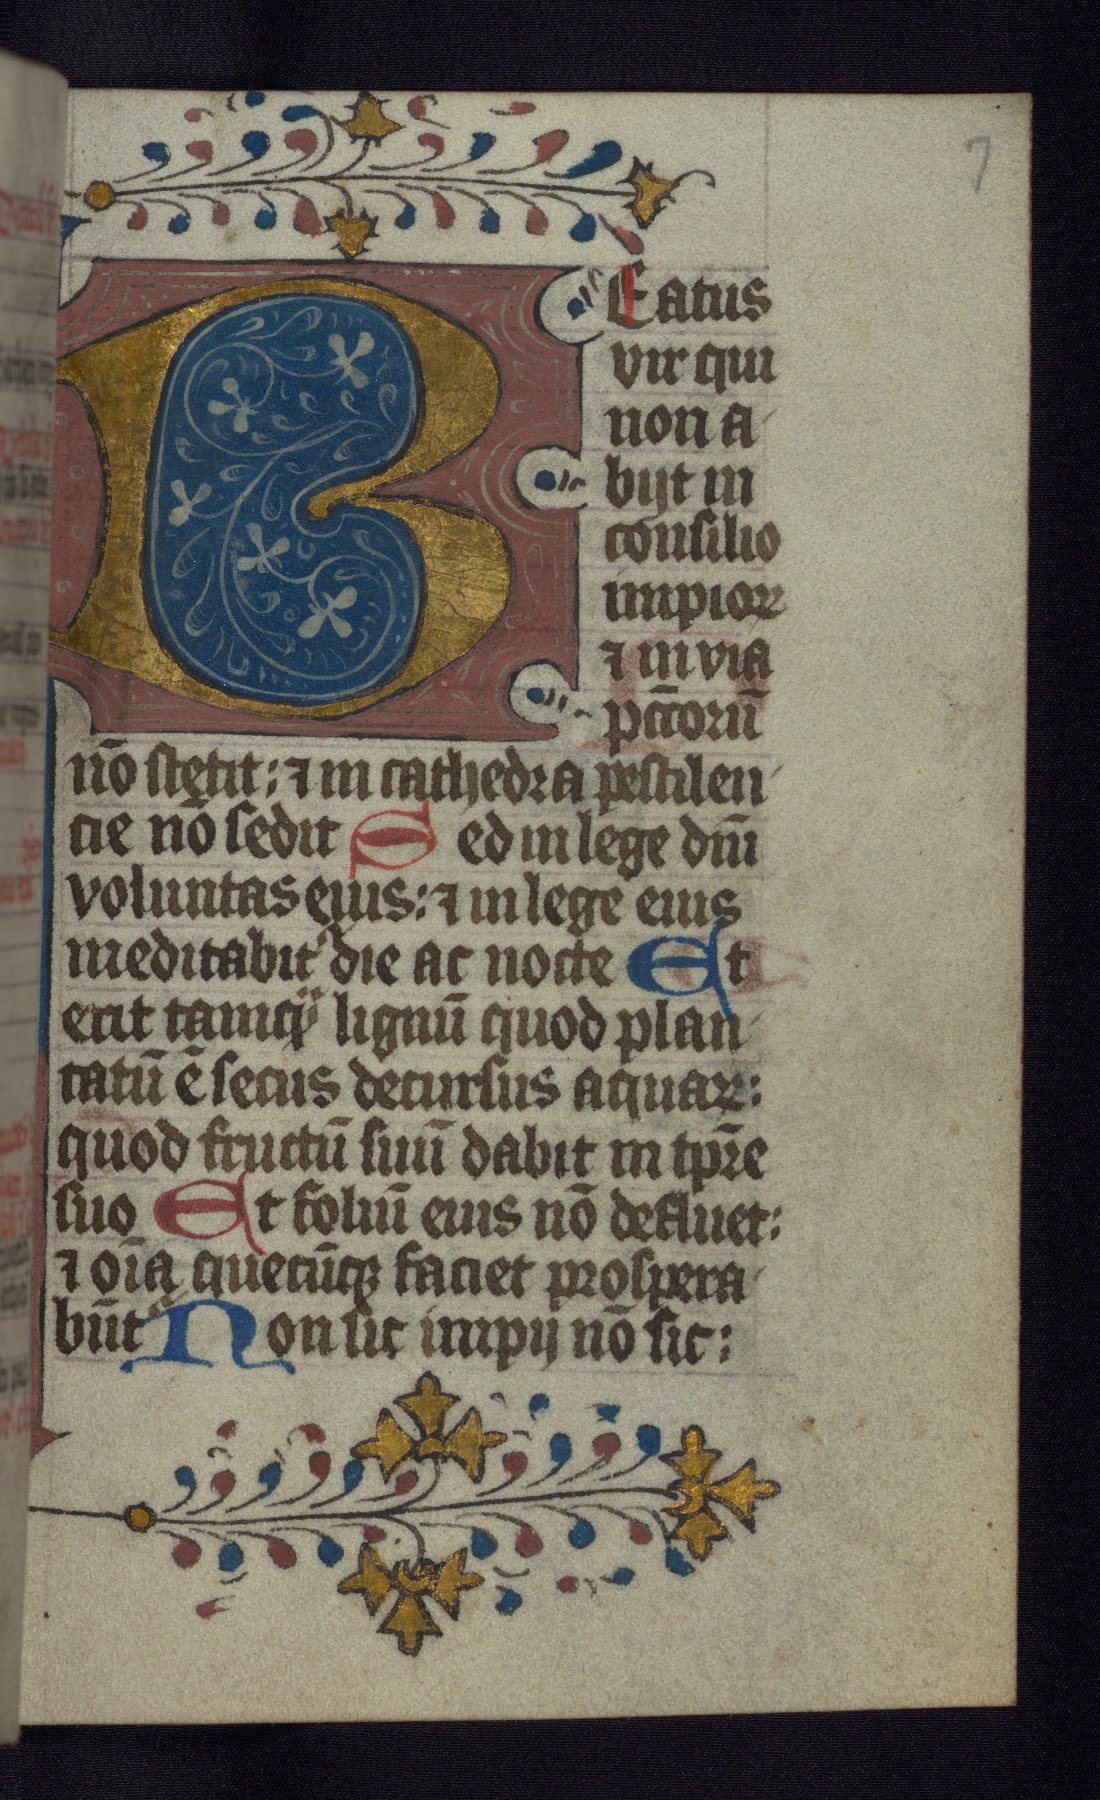 7
Beatus
vir qui
non a
bijt in
consilio
impioꝝ
⁊ in via
pccoꝝū
nō stetit: ⁊ in cathedra pestilen
cie nō sedit Sed in lege dn̄i
voluntas eius: ⁊ in lege eius
meditabit᷑ die ac nocte Et
erit tamqͣ lignū quod plan
tatū ē secus decursus aquaꝝ:
quod fructū suū dabit in tp̄re
suo Et foliū eius nō defluet:
⁊ oīa quecūqꝫ faciet prospera
būt᷑ Non sic impij nō sic: